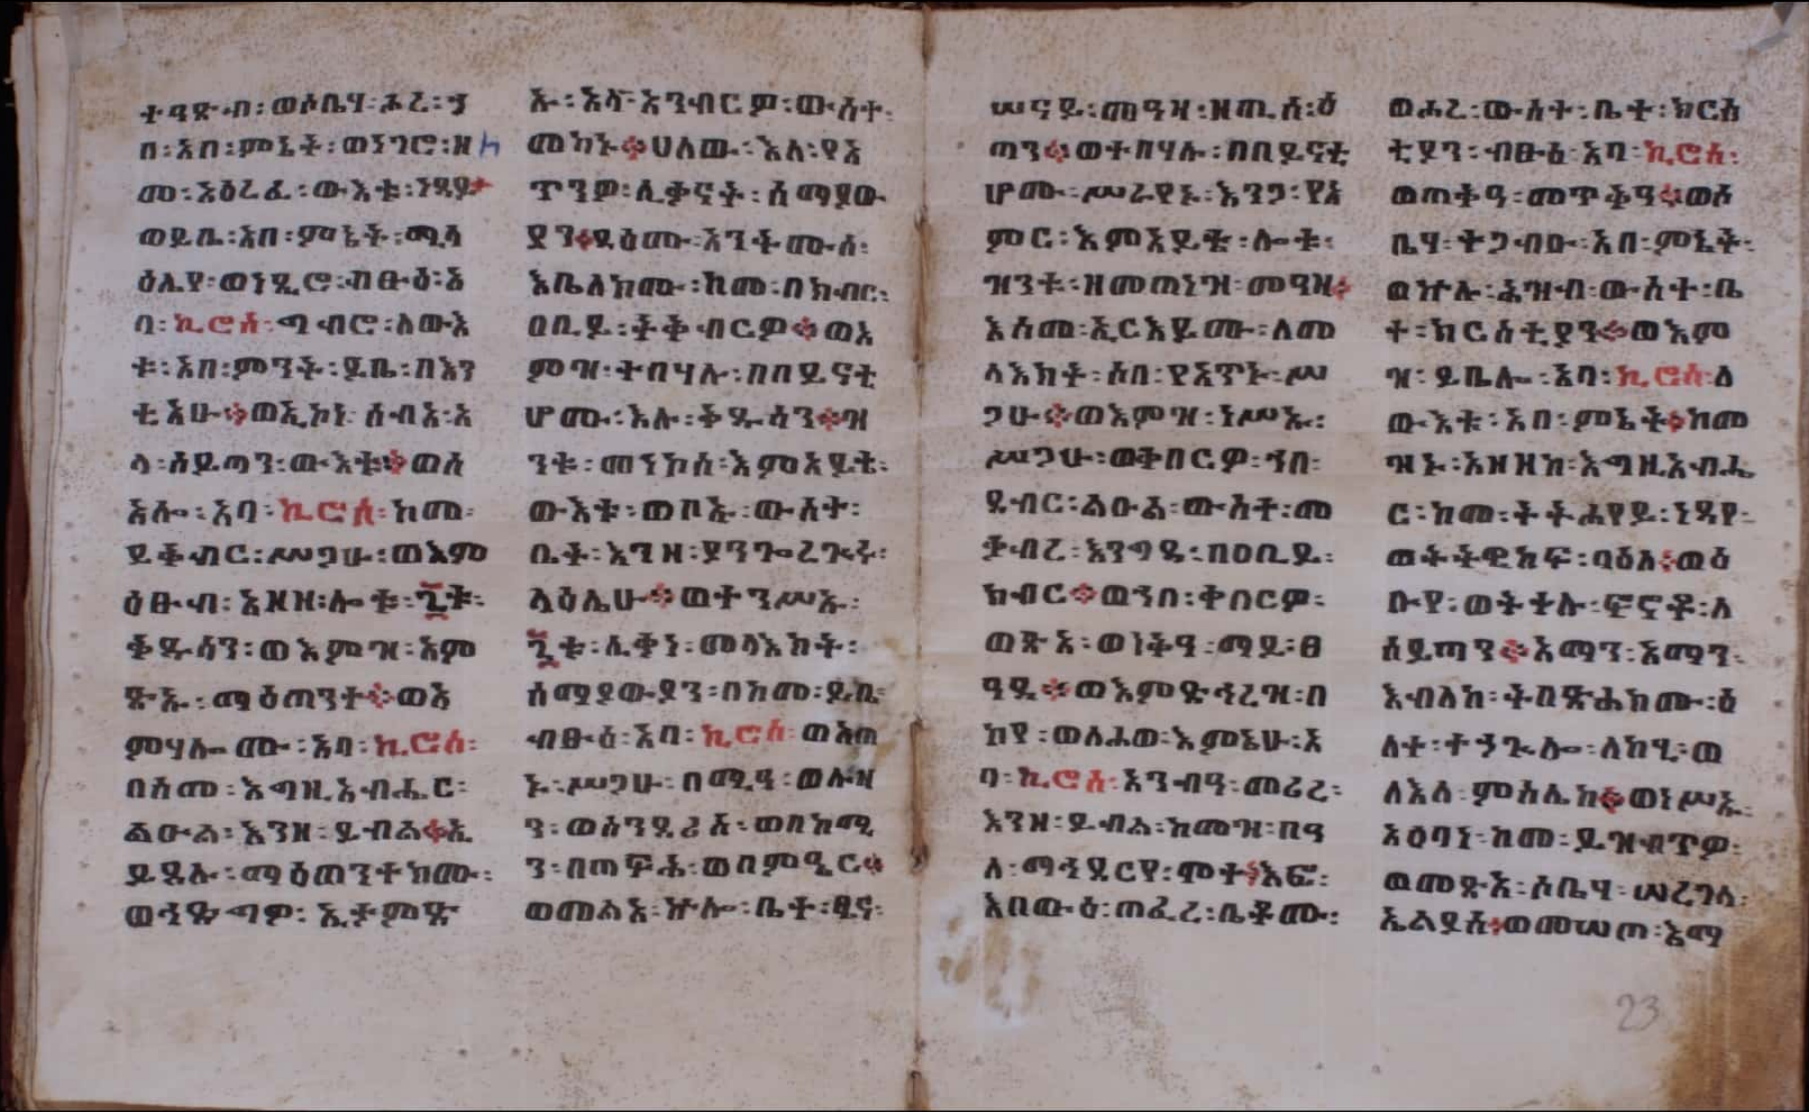 ተዓጽብ፡ወሶቤሃ፡ሖረ፡ኀ
በ፡አበ፡ምኔት፡ወነገሮ፡ዘከ
መ፡አዕረፈ፡ውእቱ፡ነዳይ፨
ወይቤ፡አበ፡ምኔት፡ሚላ
ዕሌየ፡ወነጊሮ፡ብፁዕ፡አ
ባ፡ኪሮስ፡ግብሮ፡ለውእ
ቱ፡አበ፡ምንት፡ይቤ፡በእን
ቲአሁ፨ወኢኮነ፡ሰብአ፡አ
ላ፡ሰይጣን፡ውእቱ፨ወሰ
አሎ፡አባ፡ኪሮስ፡ከመ፡
ይቅብር፡ሥጋሁ፡ወእም
ዕፁብ፡አዘዘ፡ሎቱ፡፫ቱ፡
ቅዱሳን፡ወእምዝ፡አም
ጽኡ፡ማዕጠንተ፨ወአ
ምሃሎሙ፡አባ፡ኪሮስ፡
በስመ፡እግዚአብሔር፡
ልዑል፡እንዘ፡ይብል፨ኢ
ይደሉ፡ማዕጠንተክሙ፡
ወኅዱግዎ፡ኢትምጽ
ኡ፡አላ፡አንብርዎ፡ውስተ፡
መካኑ፨ሀለው፡እለ፡የአ
ጥንዎ፡ሊቃናት፡ሰማያው
ያን፨ደዕሙ፡አንትሙሰ፡
እቤለክሙ፡ከመ፡በክብር፡
ዐቢይ፡ትቅብርዎ፨ወእ
ምዝ፡ተበሃሉ፡በበይናቲ
ሆሙ፡እሉ፡ቅዱሳን፨ዝ
ንቱ፡መነኮስ፡እምአይቴ፡
ውእቱ፡ወቦኡ፡ውስተ፡
ቤት፡እንዘ፡ያንጐረጕሩ፡
ላዕሌሁ፨ወተንሥኡ፡
፫ቱ፡ሊቀነ፡መላእክት፡
ሰማያውያን፡በከመ፡ይቤ፡
ብፁዕ፡አባ፡ኪሮስ፡ወአጠ
ኑ፡ሥጋሁ፡በሚዓ፡ወሉዛ
ን፡ወሰንደሪስ፡ወበከሚ
ን፡በጠፍሖ፡ወበምዒር፨
ወመልአ፡ኵሎ፡ቤተ፡ፄና፡
ሠናይ፡መዓዛ፡ዘጢስ፡ዕ
ጣን፨ወተበሃሉ፡በበይናቲ
ሆሙ፡ሥራየኑ፡እንጋ፡የአ
ምር፡እምአይቴ፡ሎቱ፡
ዝንቱ፡ዘመጠነዝ፡መዓዛ፨
እስመ፡ኢርእይሙ፡ለመ
ላእክት፡ሶበ፡የአጥኑ፡ሥ
ጋሁ፨ወእምዝ፡ነሥኡ፡
ሥጋሁ፡ወቅበርዎ፡ኀበ፡
ደብር፡ልዑል፡ውስተ፡መ
ቃብረ፡እንግዳ፡በዐቢይ፡
ክብር፨ወኀበ፡ቀበርዎ፡
ወጽአ፡ወነቅዓ፡ማይ፡ፀ
ዓዳ፨ወእምድኅረዝ፡በ
ከየ፡ወለሐወ፡እምኔሁ፡አ
ባ፡ኪሮስ፡አንብዓ፡መሪረ፡
እንዘ፡ይብል፡ከመዝ፡በዓ
ለ፡ማኅደርየ፡ሞተ፨እፎ፡
አበውዕ፡ጠፈረ፡ቤቶሙ፡
ወሖረ፡ውስተ፡ቤተ፡ክርስ
ቲያን፡ብፁዕ፡አባ፡ኪሮስ፡
ወጠቅዓ፡መጥቅዓ፨ወሶ
ቤሃ፡ተጋብኡ፡አበ፡ምኔት፡
ወኵሉ፡ሕዝብ፡ውስተ፡ቤ
ተ፡ክርስቲያን፨ወእም
ዝ፡ይቤሎ፡አባ፡ኪሮስ፡ለ
ውእቱ፡አበ፡ምኔት፨ከመ
ዝኑ፡አዘዘከ፡እግዚአብሔ
ር፡ከመ፡ትትሐየይ፡ነዳየ፡
ወትትዌከፍ፡ባዕለ፨ወዕ
ቡየ፡ወትተሉ፡ፍኖቶ፡ለ
ሰይጣን፨አማን፡አማን፡
እብለከ፡ትበጽሐክሙ፡ዕ
ለተ፡ተኀጕሎ፡ለከሂ፡ወ
ለእለ፡ምስሌከ፨ወነሥኡ፡
አዕባነ፡ከመ፡ይዝብጥዎ፡
ወመጽአ፡ሶቤሃ፡ሠረገላ፡
ኤልያስ፨ወመሠጠ፡ኔማ
23